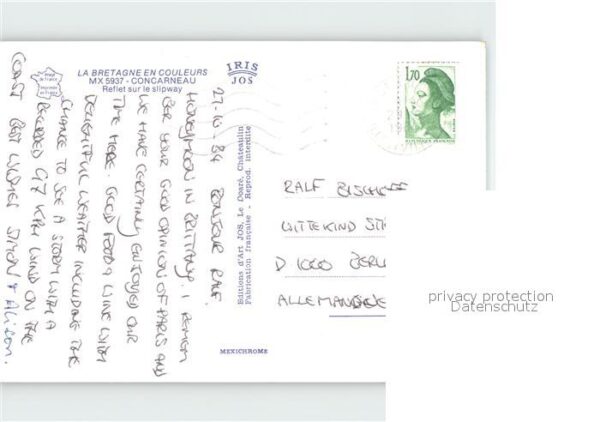 LA BRETAGNE EN COULEURS
MX 5937 - CONCARNEAU
Reflet sur le slipway
IRIS
JOS
27-10-84 BONJOUR RALF.
HONEYMOON IN BRITTANY. I REMEM
BER YOUR GOOD OPINION OF PARIS AND
WE HAVE CERTAINLY ENJOYED OUR
TIME HERE. GOOD FOOD & WINE WITH
DELIGHTFUL WEATHER INCLUDING THE
CHANCE TO SEE A STORM WITH A
RECORDED 97 KPH WIND ON THE
COAST BEST WISHES SIMON & Alison.
Editions d'Art JOS, Le Doaré, Châteaulin
Fabrication française - Reprod. interdite
MEXICHROME
1,70
RALF BISCHOFF
WITTEKIND
D 1000 BERLI
ALLEMAGNE
privacy protection
Datenschutz